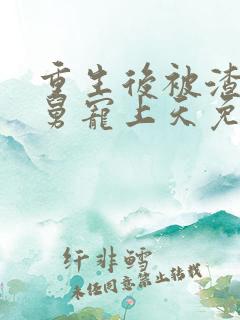 重生後被渣
舅寵上天免
纤非鳕
未经同意禁止转载